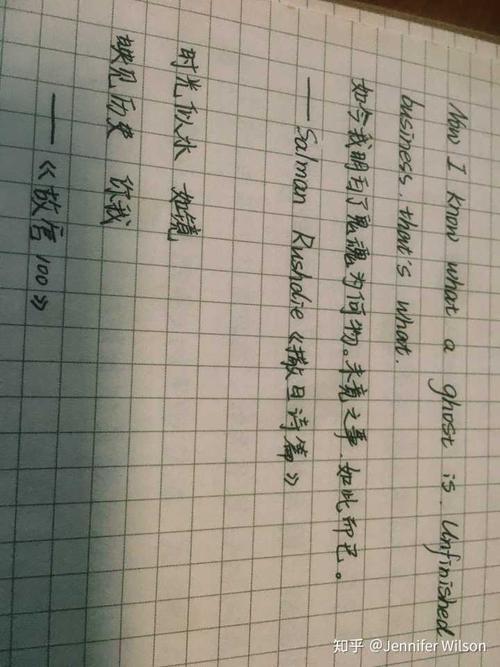 Now I know what a ghost is. Unfinished
business, that's what.
如今我明白了鬼魂为何物。未竟之事，如此而已。
——Salman Rushdie《撒旦诗篇》
时光似水 如镜
映见历史 你我
——《故宫100》
知乎 @Jennifer Wilson